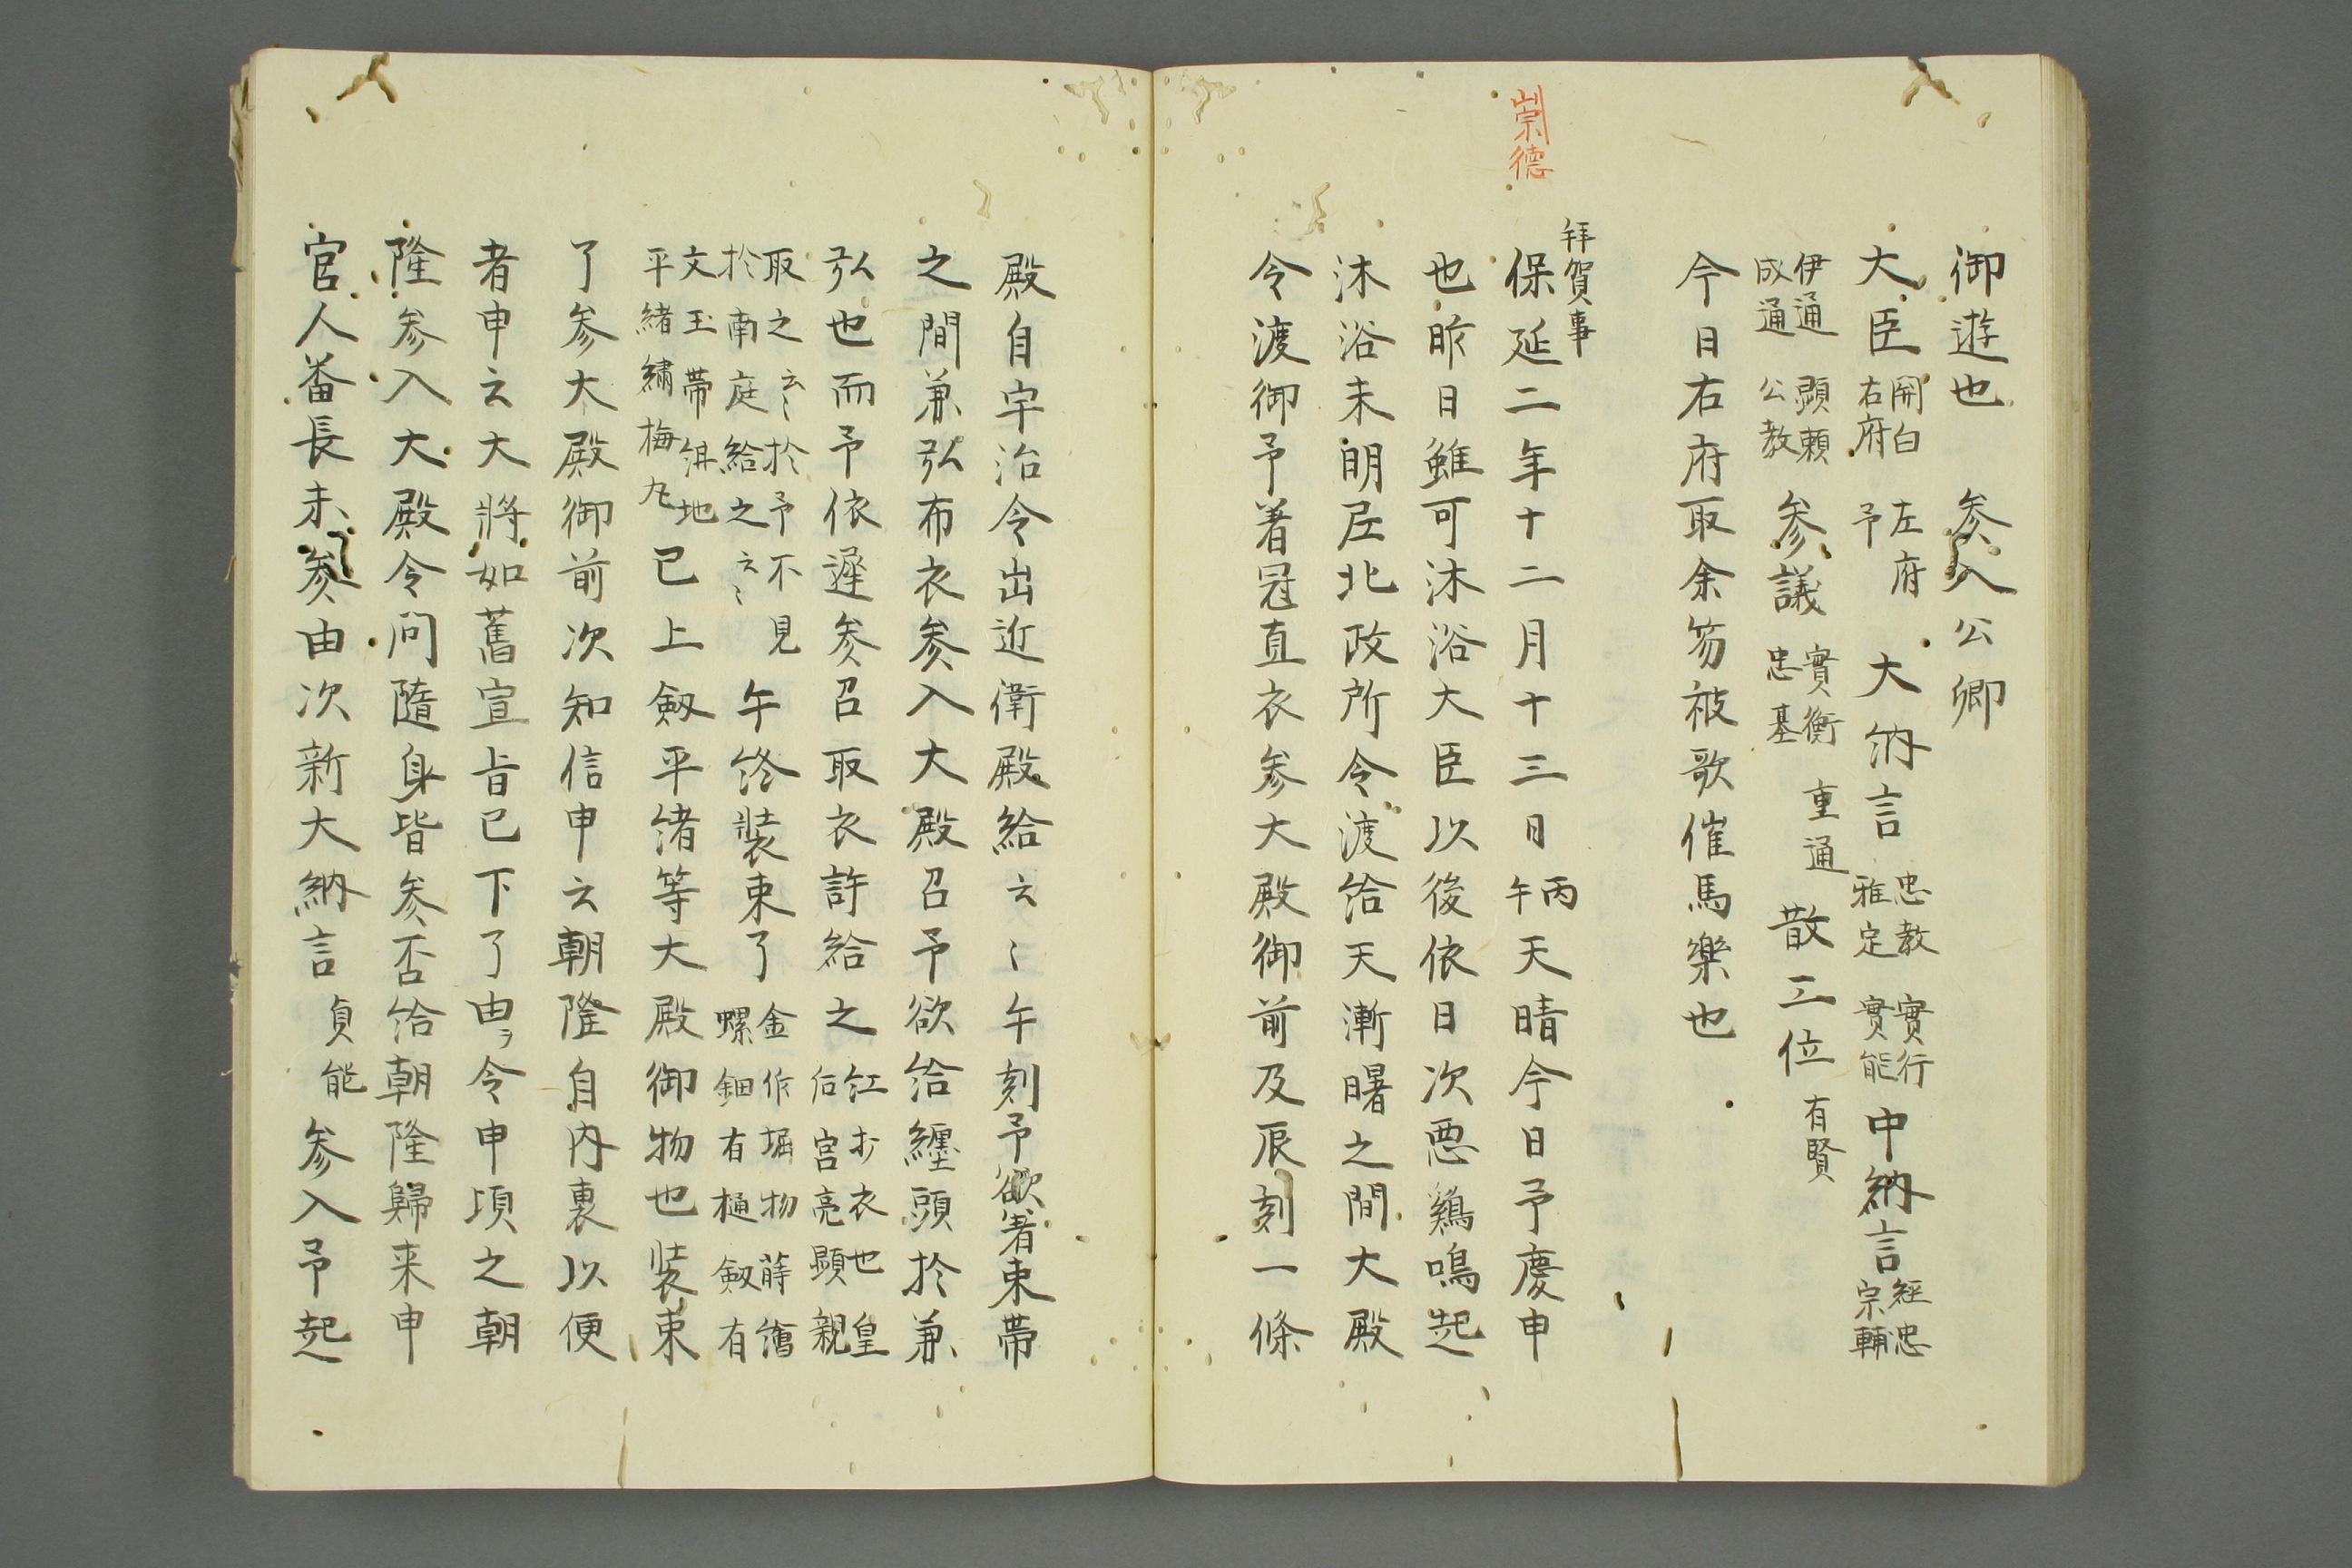 御遊也　参入公卿
大臣 関白 右府 左府 予 大納言 忠教 雅定 實行 實能 中納言 経忠 宗輔
伊通 成通 顕頼 公教 参議 實衡 忠基 重通 散三位 有賢
今日右府取余笏被歌催馬樂也
崇徳
拜賀事
保延二年十二月十三日 丙午 天晴今日予慶申
也昨日雖可沐浴大臣以後依日次悪鶏鳴起
沐浴未明圧北政所令渡給天漸曙之間大殿
令渡御予着冠直衣参大殿御前及辰刻一條
殿自宇治令出近衛殿給云〻午刻予欲着束帯
之間兼弘布衣参入大殿召予欲給纏頭於兼
弘也而予依遅参召取衣許給之 紅打衣也皇 后宮亮顕親
取之云〻於予不見 於南庭給之云〻 午終装束了 金作堀物蒔繪 螺鈿有樋釼有
文玉帯 地 平緒繡梅丸 已上釼平緒等大殿御物也装束
了参大殿御前次知信申云朝隆自内裏以便
者申云大將如舊宣旨已下了由ヲ令申頃之朝
隆参入大殿令問隨身皆参否給朝隆歸来申
官人番長未参由次新大納言 實能 参入予起